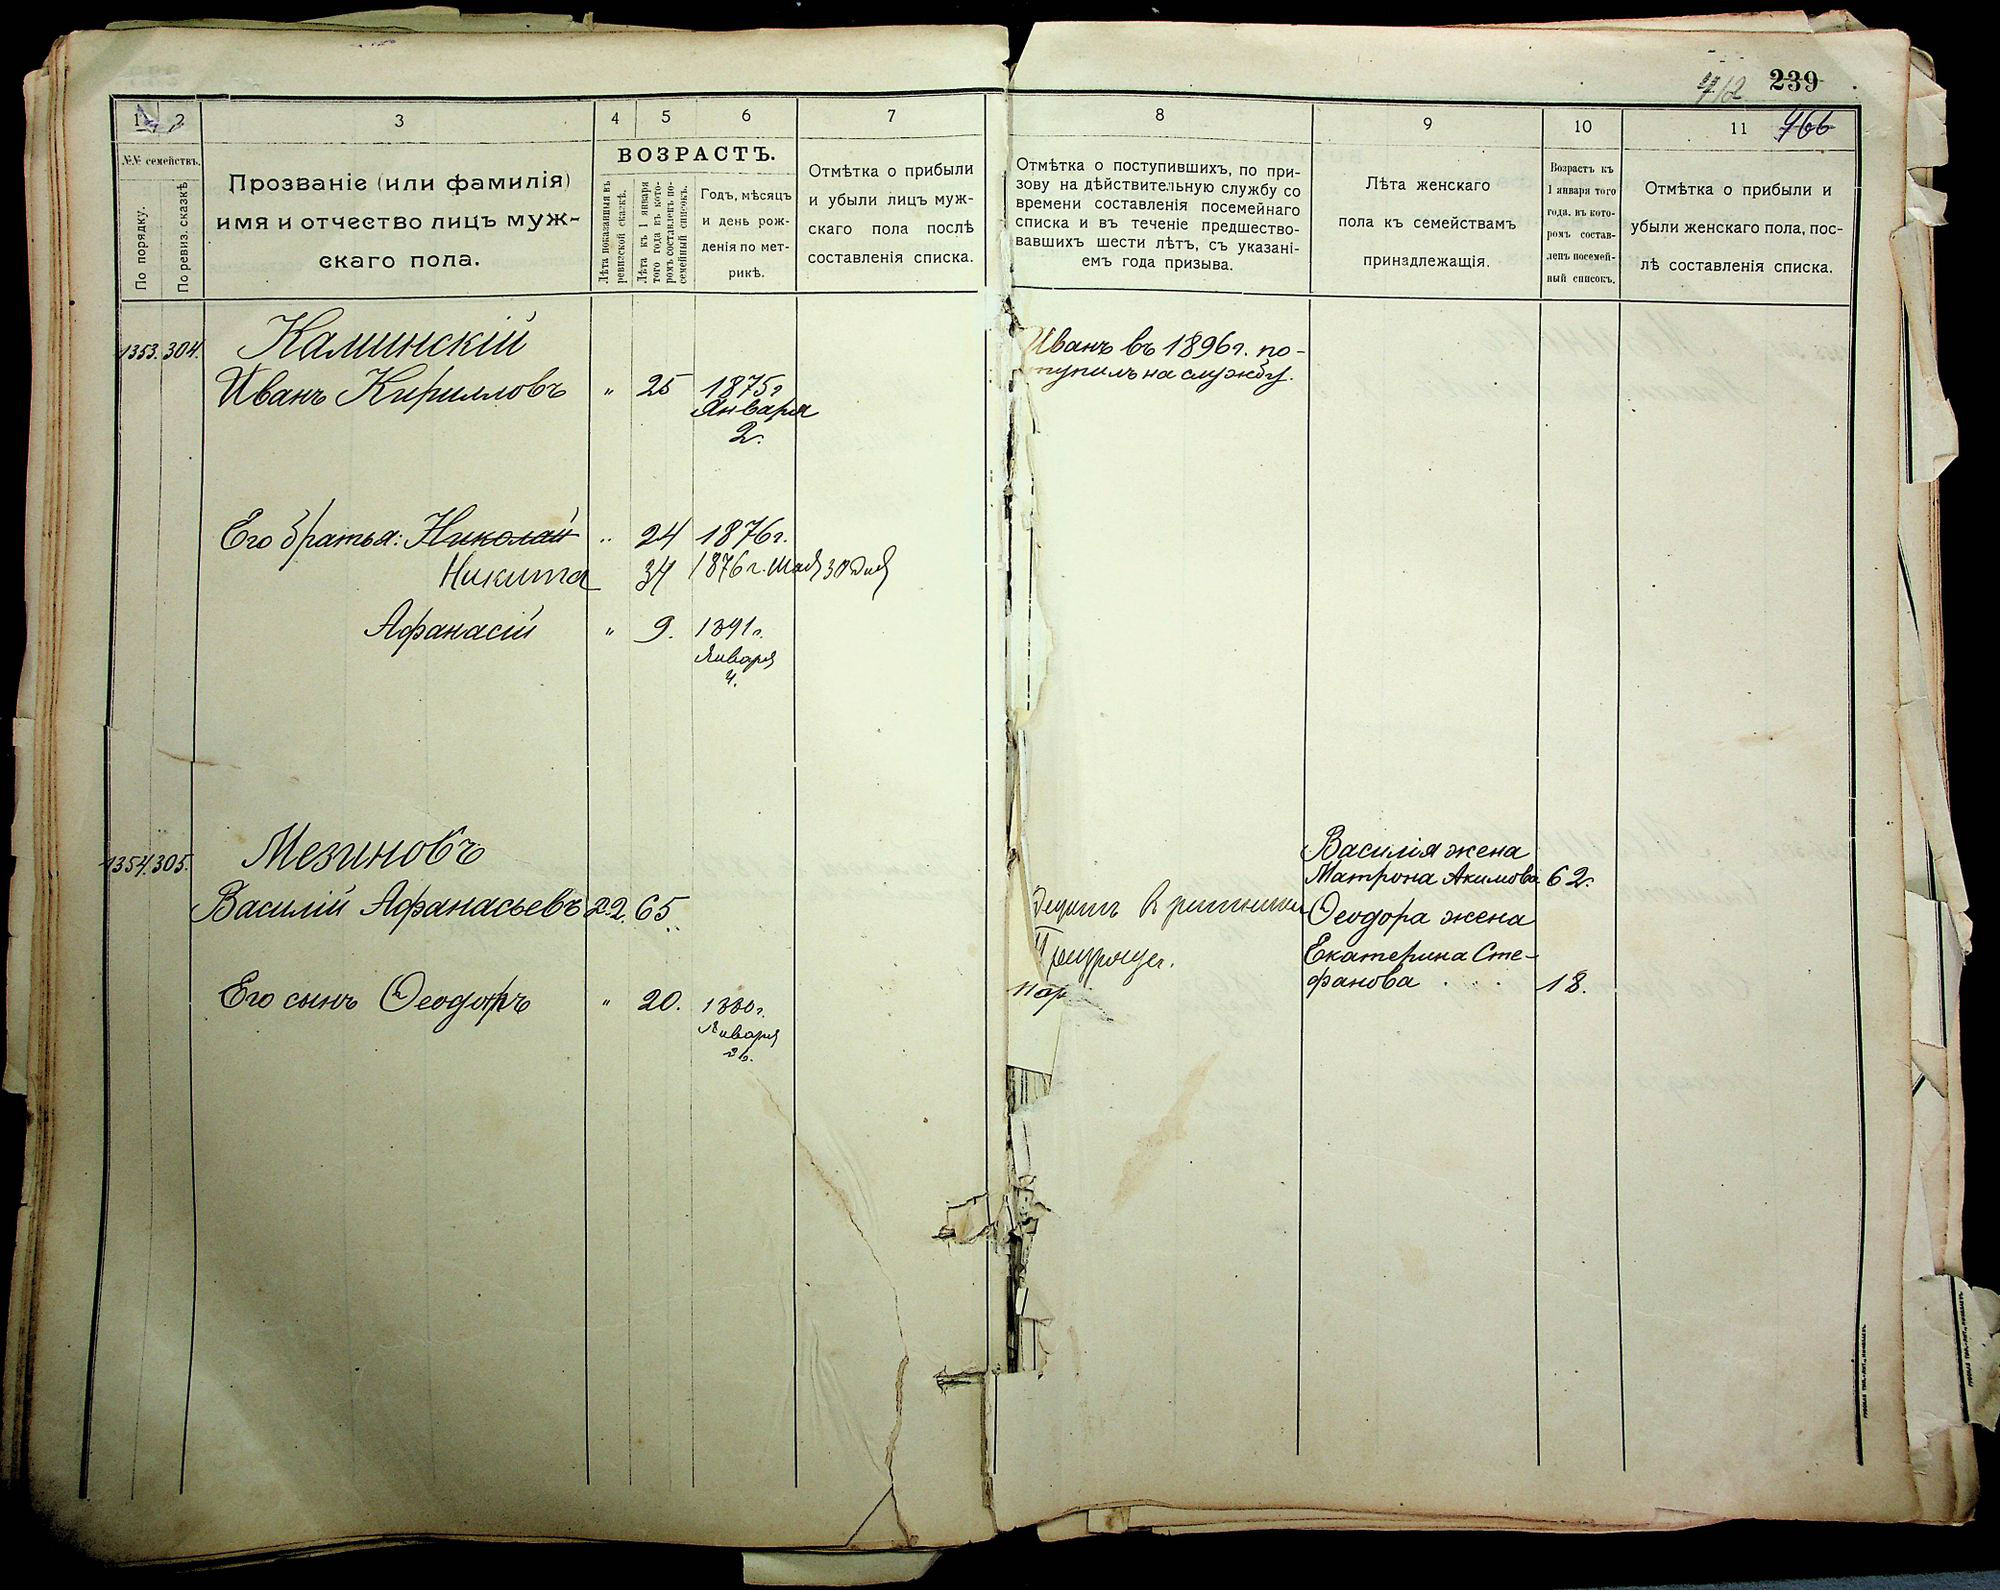 239
966
1 2 3 4 5 6 7 8 9 10 11
№№ семействъ.
По порядку.
По ревиз. сказкѣ
Прозваніе (или фамилія)
имя и отчество лицъ муж-
скаго пола.
ВОЗРАСТЪ.
Лѣта показанныя въ
ревизской сказкѣ.
Лѣта къ 1 января
того года въ кото-
ромъ составленъ по-
семейный списокъ.
Годъ, мѣсяцъ
и день рож-
денія по мет-
рикѣ.
Отмѣтка о прибыли
и убыли лицъ муж-
скаго пола послѣ
составленія списка.
Отмѣтка о поступившихъ, по при-
зову на дѣйствительную службу со
времени составленія посемейнаго
списка и въ теченіе предшество-
вавшихъ шести лѣтъ, съ указані-
емъ года призыва.
Лѣта женскаго
пола къ семействамъ
принадлежащія.
Возрастъ къ
1 января того
года, въ кото-
ромъ состав-
ленъ посемей-
ный списокъ.
Отмѣтка о прибыли и
убыли женскаго пола, пос-
лѣ составленія списка.
1353. 304. Калинскій
Иванъ Кирилловъ " 25 1875г
Января
2.
Иванъ въ 1896г. по-
тупилъ на службу.
Его братья: Николай " 24 1876г.
Никита 34 1876г. мая 30 дня
Афанасій " 9. 1891г.
Января
4.
1354. 305. Мезиновъ
Василій Афанасьевъ 22. 65.
Его сынъ Ѳеодоръ " 20. 1880г.
Января
26.
Василія жена
Матрона Акимова 62.
Ѳеодора жена
Екатерина Сте-
фанова 18.